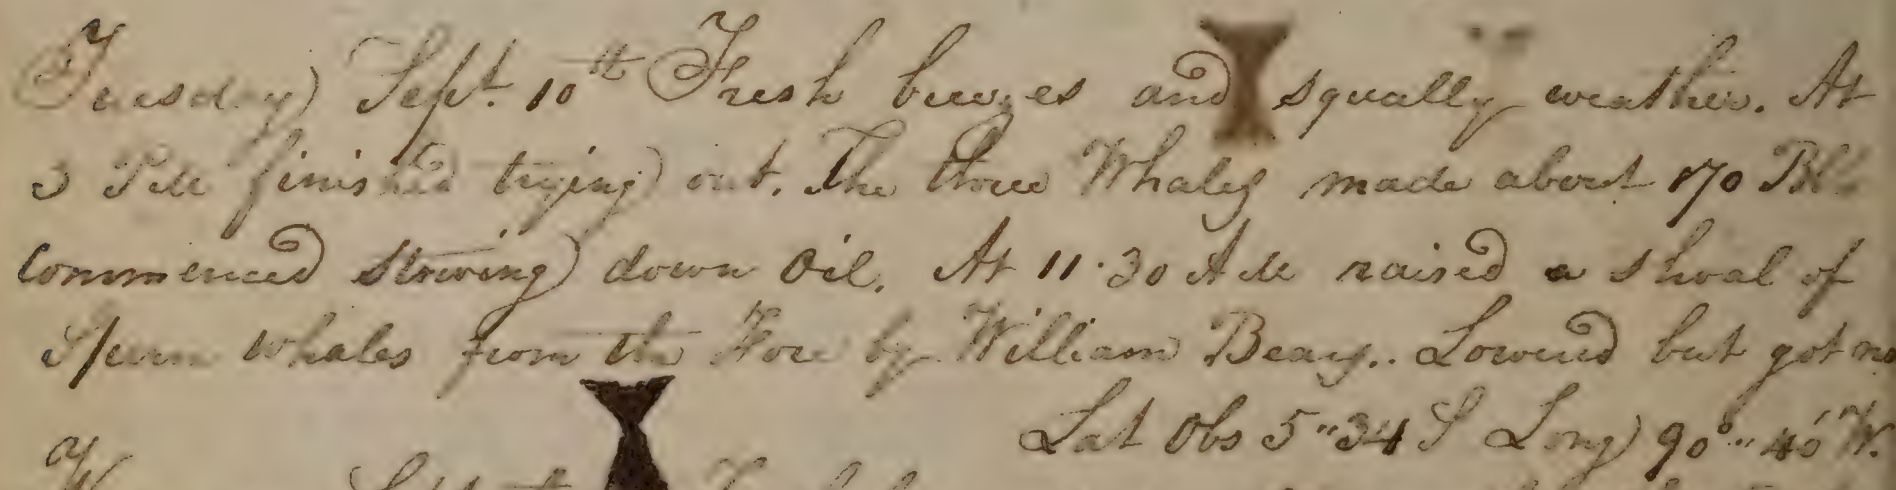 Tuesday Sept. 10th Fresh breezes and squally weather. At
3 PM finished trying out. The three Whales made about 170 Bbls
Commenced Stowing down Oil. At 11.30 AM raised a shoal of
Sperm Whales from the Fore by William Beay.. Lowered but got no
Lat Obs 5"34 S Long 90°"40' W.
Sept